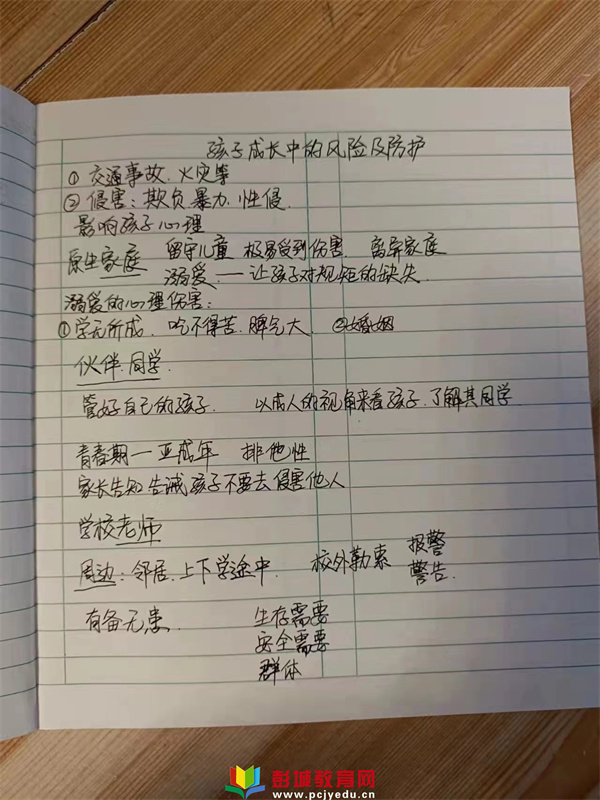 孩子成长中的风险及防护
① 交通事故、火灾等
② 侵害：欺负、暴力、性侵、
影响孩子心理
原生家庭 留守儿童 极易受到伤害、离异家庭
溺爱、—让孩子对规矩的缺失、
溺爱的心理伤害：
①学无所成、吃不得苦、脾气大、 ②婚姻
伙伴、同学
管好自己的孩子、 以成人的视角来看孩子、了解其同学
青春期—亚成年 排他性
家长告知、告诫孩子不要去侵害他人
学校老师
周边：邻居、上下学途中、 校外勒索 报警
警告、
有备无患、 生存需要
安全需要
群体
彭城教育网
www.pcjyedu.cn